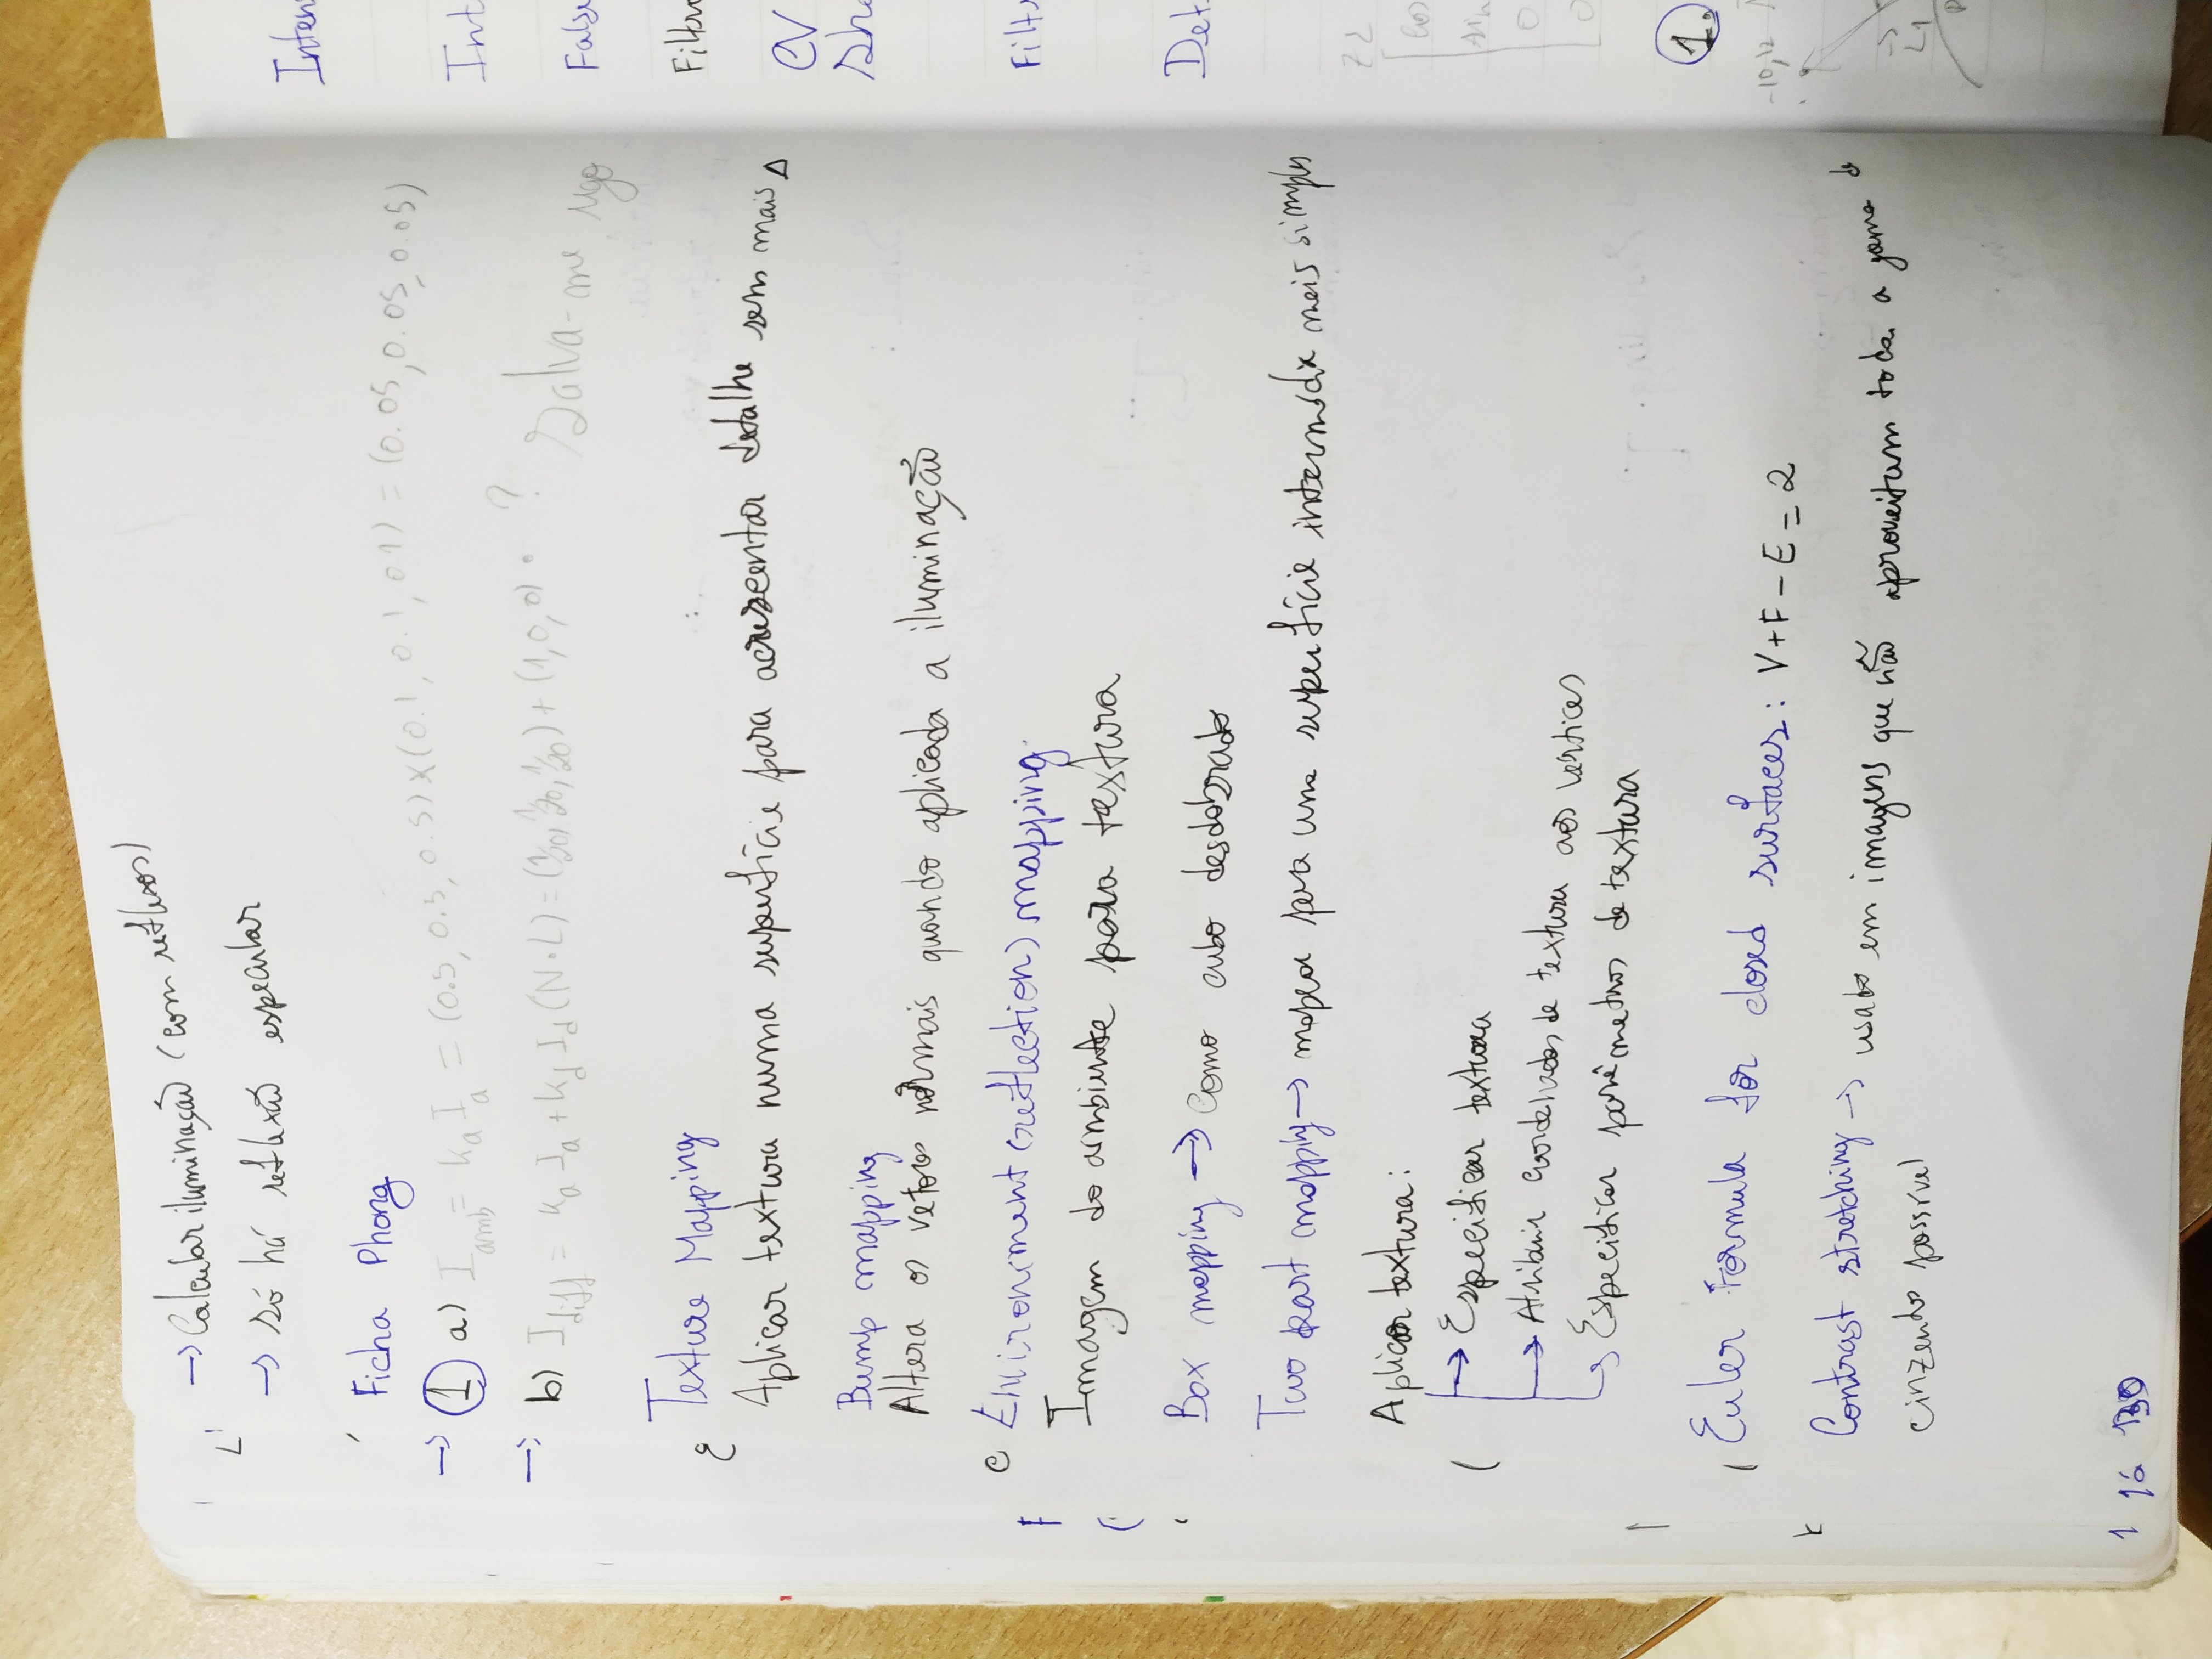 → Calcular iluminação (com reflexos)
→ só há reflexão especular
Ficha Phong
→ 1 a) I_amb = k_a I_a = (0.5, 0.5, 0.5) × (0.1, 0.1, 0.1) = (0.05, 0.05, 0.05)
→ b) I_diff = k_a I_a + k_d I_d (N·L) = (1/20, 1/20, 1/20) + (1, 0, 0) · ? Salva-me ugo
Texture Mapping
Aplicar textura numa superfície para acrescentar detalhe sem mais Δ
Bump mapping
Altera os vetores normais quando aplicada a iluminação
Environment (reflection) mapping
Imagem do ambiente para textura
Box mapping → como cubo desdobrado
Two part mapping → mapear para uma superfície intermédia mais simples
Aplicar textura:
→ Especificar textura
→ Atribuir coordenadas de textura aos vértices
→ Especificar parâmetros de textura
Euler Formula for closed surfaces: V + F - E = 2
Contrast stretching → usado em imagens que não aproveitam toda a gama de
cinzentos possível
130
Inten
Int
False
Filtro
CV
Sha
Filt
Det
1.
-10,12
L1